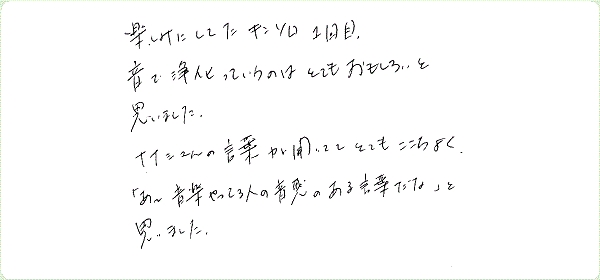 楽しみにしてた キンソロ 1回目、
音で 浄化っていうのは とても おもしろいと
思いました。
ナイシスんの 言葉が 聞いてて とても ここちよく、
「あ〜 音楽やってる人の 音感の ある 言葉だな」と
思いました。